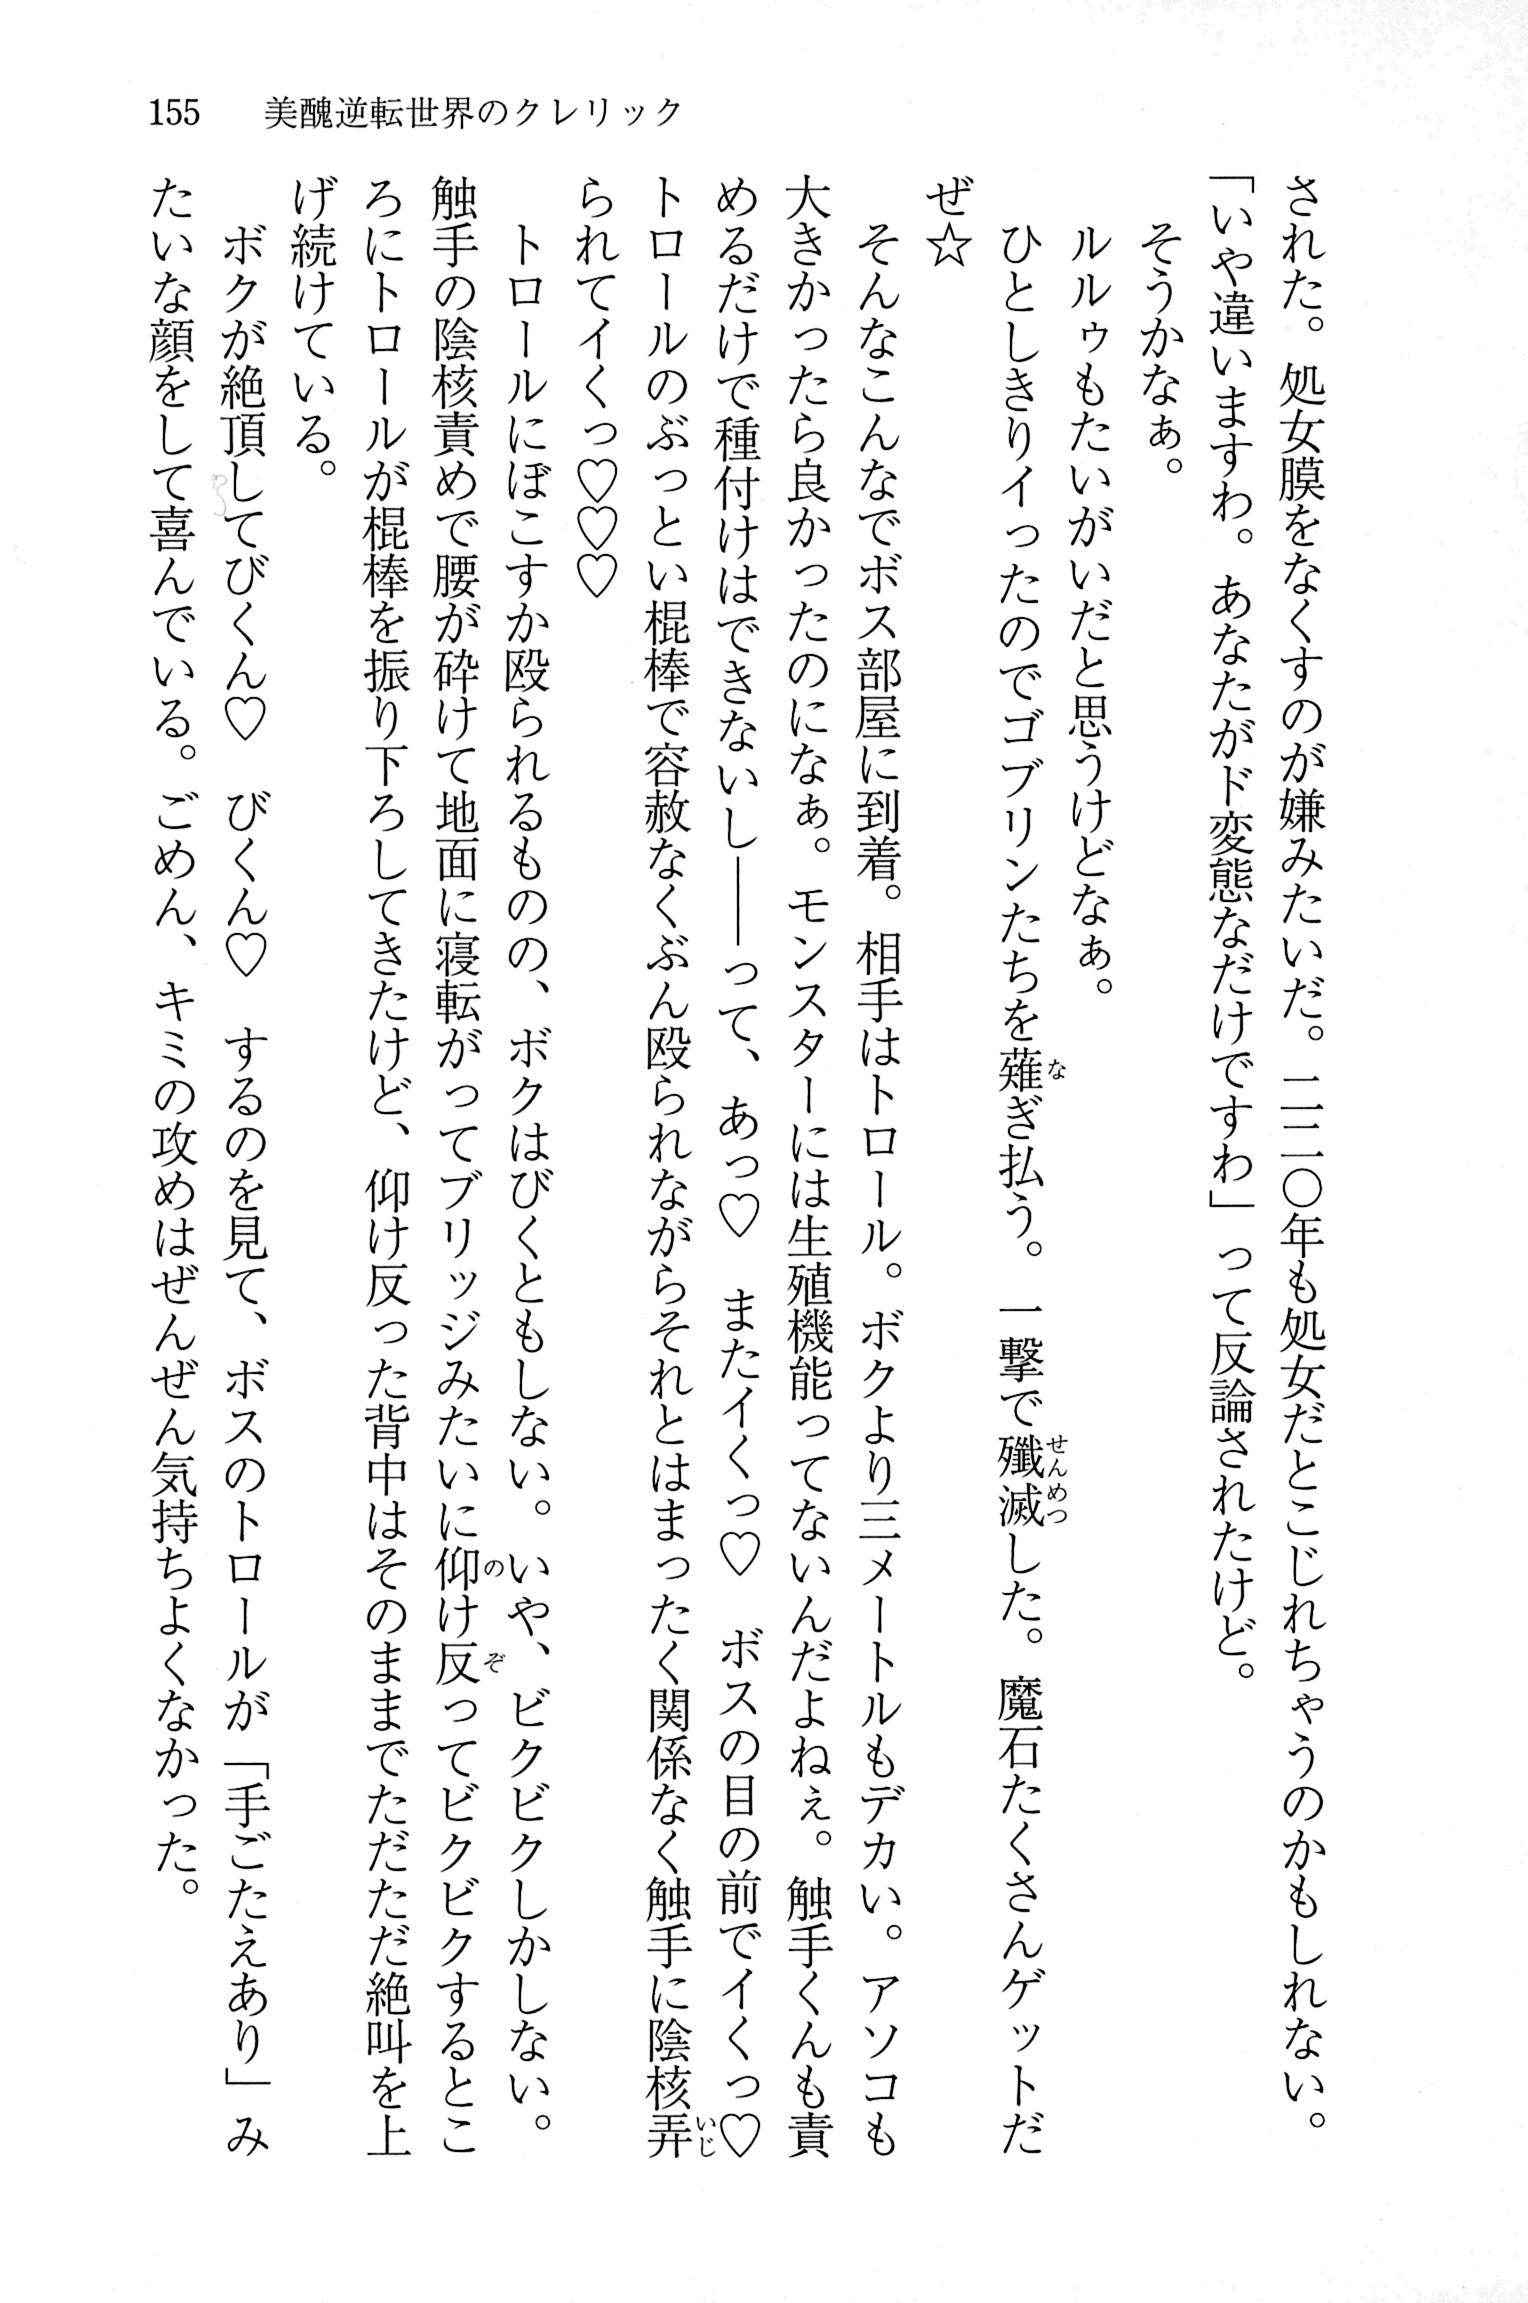 155　美醜逆転世界のクレリック
された。処女膜をなくすのが嫌みたいだ。二二〇年も処女だとこじれちゃうのかもしれない。
「いや違いますわ。あなたがド変態なだけですわ」って反論されたけど。
そうかなぁ。
ルルゥもたいがいだと思うけどなぁ。
ひとしきりイったのでゴブリンたちを薙ぎ払う。一撃で殲滅した。魔石たくさんゲットだ
ぜ☆
そんなこんなでボス部屋に到着。相手はトロール。ボクより三メートルもデカい。アソコも
大きかったら良かったのになぁ。モンスターには生殖機能ってないんだよねぇ。触手くんも責
めるだけで種付けはできないし――って、あっ♡　またイくっ♡　ボスの目の前でイくっ♡
トロールのぶっとい棍棒で容赦なくぶん殴られながらそれとはまったく関係なく触手に陰核弄
られてイくっ♡♡♡
トロールにぼこすか殴られるものの、ボクはびくともしない。いや、ビクビクしかしない。
触手の陰核責めで腰が砕けて地面に寝転がってブリッジみたいに仰け反ってビクビクするとこ
ろにトロールが棍棒を振り下ろしてきたけど、仰け反った背中はそのままでただただ絶叫を上
げ続けている。
ボクが絶頂してびくん♡　びくん♡　するのを見て、ボスのトロールが「手ごたえあり」み
たいな顔をして喜んでいる。ごめん、キミの攻めはぜんぜん気持ちよくなかった。